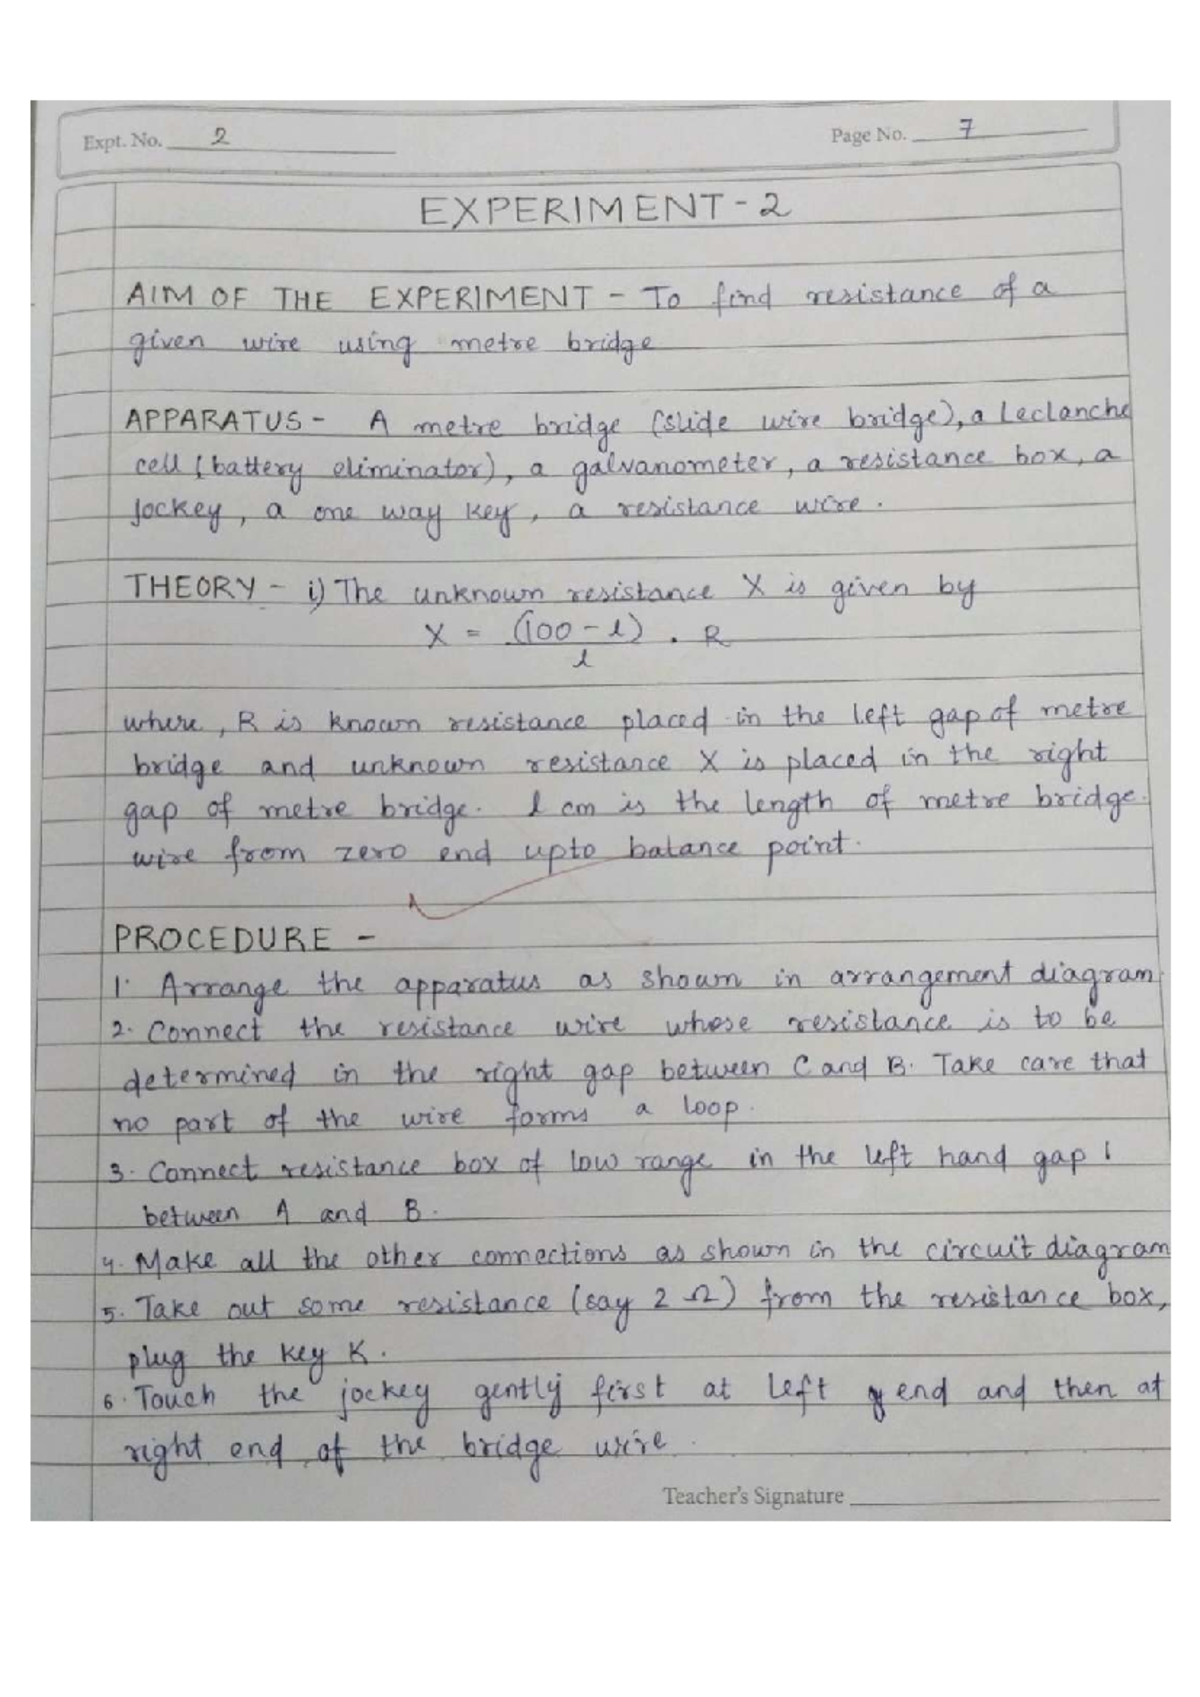 Expt. No. 2
Page No. 7
EXPERIMENT - 2
AIM OF THE EXPERIMENT - To find resistance of a
given wire using metre bridge
APPARATUS - A metre bridge (slide wire bridge), a Leclanche
cell (battery eliminator), a galvanometer, a resistance box, a
jockey, a one way key, a resistance wire.
THEORY - i) The unknown resistance X is given by
X = (100 - l) . R
l
where, R is known resistance placed in the left gap of metre
bridge and unknown resistance X is placed in the right
gap of metre bridge. l cm is the length of metre bridge.
wire from zero end upto balance point.
PROCEDURE -
1. Arrange the apparatus as shown in arrangement diagram
2. Connect the resistance wire whose resistance is to be
determined in the right gap between C and B. Take care that
no part of the wire forms a loop.
3. Connect resistance box of low range in the left hand gap
between A and B.
4. Make all the other connections as shown in the circuit diagram
5. Take out some resistance (say 2 Ω) from the resistance box,
plug the key K.
6. Touch the jockey gently first at left end and then at
right end of the bridge wire.
Teacher's Signature